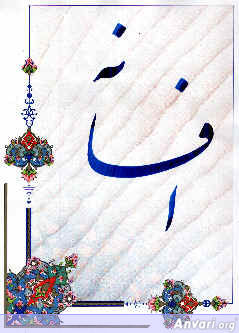 افسانه
Anvari.org